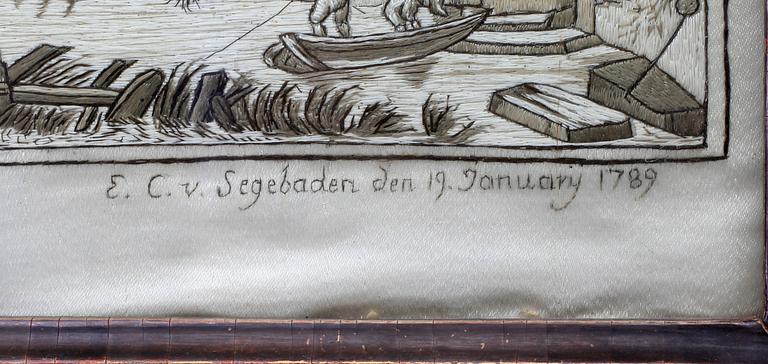 E. C. v. Segebaden den 19. Januarij 1789